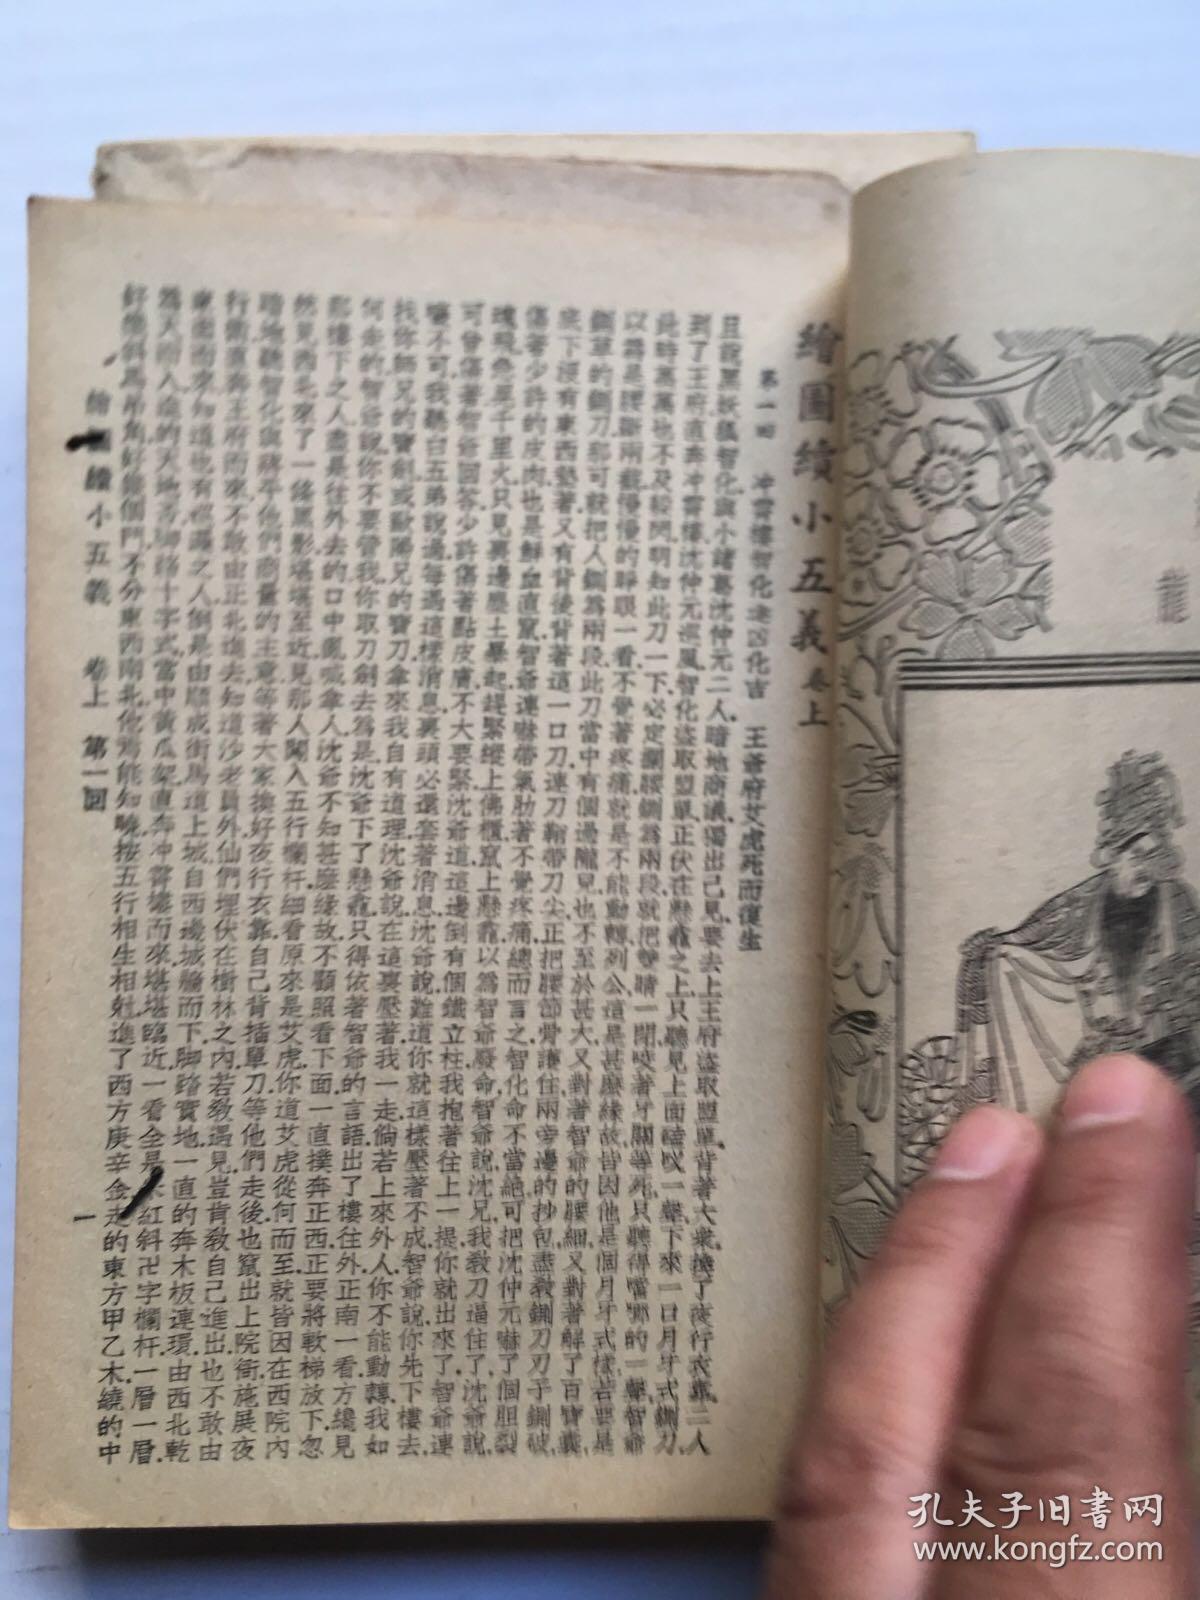 繪圖續小五義 卷上
第一回 冲霄樓智化逢凶化吉 王爺府艾虎死而復生
且說黑妖狐智化與小諸葛沈仲元二人暗地商議獨出己見要去上王府盜取盟單背著大衆換了夜行衣靠二人
到了王府直奔冲霄樓沈仲元巡風智化盜取盟單正伏在懸龕之上只聽見上面磕叹一聲下來一口月牙式鍘刀
此時萬萬也不及較閃明知此刀一下必定攔腰鍘為兩段就把雙睛一閉咬著牙關等死只聽得噹啷的一聲智爺
以為是腰斷兩截慢慢的睜眼一看不覺著疼痛就是不能動轉列公這是甚麼緣故皆因他是個月牙式樣若要是
鍘草的鍘刀那可就把人鍘為兩段此刀當中有個過隴兒也不至於甚大又對著智爺的腰細又對著解了百寶囊
底下便有東西墊著又有背後背著這一口刀連刀鞘帶刀尖正把腰節骨護住兩旁邊的抄包盡敎鍘刀刃子鍘破
傷著少許的皮肉也是鮮血直竄智爺連嚇帶氣肋著不覺疼痛總而言之智化命不當絕可把沈仲元嚇了個胆裂
魂飛急晃千里火只見裏邊塵土暴起趕緊縱上佛櫃竄上懸龕以為智爺廢命智爺說沈兄我敎刀逼住了沈爺說
可曾傷著智爺回答少許傷著點皮膚不大要緊沈爺道這邊倒有個鐵立柱我抱著往上一提你就出來了智爺連
嚷不可我聽白五弟說過每遇這樣消息裏頭必還套著消息沈爺說難道你就這樣壓著不成智爺說你先下樓去
找你師兄的寶劍或歐陽兄的寶刀拿來我自有道理沈爺說在這裏壓著我一走倘若上來外人你不能動轉我如
何走的智爺說你不要管我你取刀劍去為是沈爺下了懸龕只得依著智爺的言語出了樓往外正南一看方纔見
那樓下之人盡是往外去的口中亂喊拿人沈爺不知甚麼緣故不顧照看下面一直撲奔正西正要將軟梯放下忽
然見西北來了一條黑影堪堪至近見那人闖入五行欄杆細看原來是艾虎你道艾虎從何而至就皆因在西院內
暗地聽智化與蔣平他們商量的主意等著大家換好夜行衣靠自己背插單刀等他們走後也竄出上院衙施展夜
行術直奔王府而來不敢由正北進去知道沙老員外仙們埋伏在樹林之內若敎遇見豈肯敎自己進出也不敢由
東面而來知道也有巡邏之人倒是由順成街馬道上城自西邊城牆而下脚踏實地一直的奔木板連環由西北乾
為天而入走的天地否脚踏十字式當中黃瓜架直奔冲霄樓而來堪堪臨近一看全是朱紅斜卍字欄杆一層一層
好像斜馬吊角好幾個門不分東西南北他焉能知曉按五行相生相尅進了西方庚辛金走的東方甲乙木繞的中
繪圖續小五義 卷上 第一回
一
龍
孔夫子旧書网
www.kongfz.com